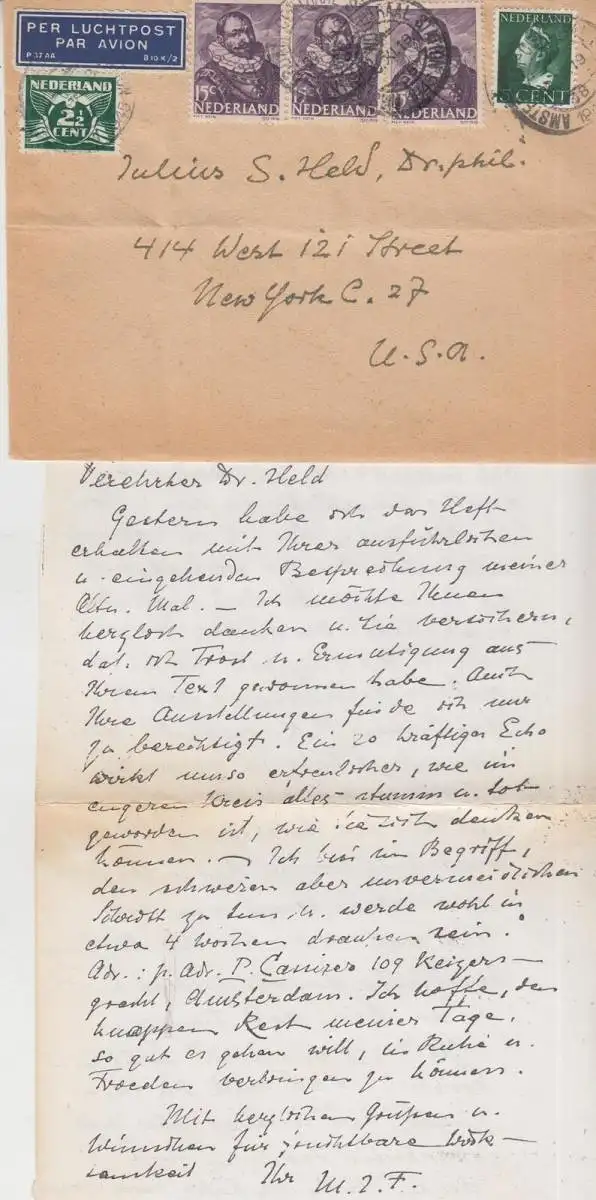 PER LUCHTPOST
PAR AVION
P 37 AA B 10 K/2
NEDERLAND
2½
CENT
15c
NEDERLAND
NEDERLAND
NEDERLAND
NEDERLAND
5 CENT
Julius S. Held, Dr. phil.
414 West 121 Street
New York C. 27
U.S.A.
Verehrter Dr. Held
Gestern habe ich das Heft
erhalten mit Ihrer ausführlichen
u. eingehenden Besprechung meiner
Altn. Mal. – Ich möchte Ihnen
herzlich danken u. Sie versichern,
dat. ich Trost u. Ermutigung aus
Ihrem Text gewonnen habe. Auch
Ihre Ausstellungen finde ich nur
zu berechtigt. Ein so kräftiges Echo
wirkt umso erfreulicher, wie im
engeren Kreis alles stumm u. tot
geworden ist, wie Sie sich denken
können. – Ich bin im Begriff,
den schweren aber unvermeidlichen
Schritt zu tun u. werde wohl in
etwa 4 Wochen draußen sein.
Adr.: p. adr. P. Cassirer 109 Keizers-
gracht, Amsterdam. Ich hoffe, den
knappen Rest meiner Tage,
so gut es gehen will, in Ruhe u.
Frieden verbringen zu können.
Mit herzlichen Grüßen u.
Wünschen für fruchtbare Wirk-
samkeit Ihr M. J. F.